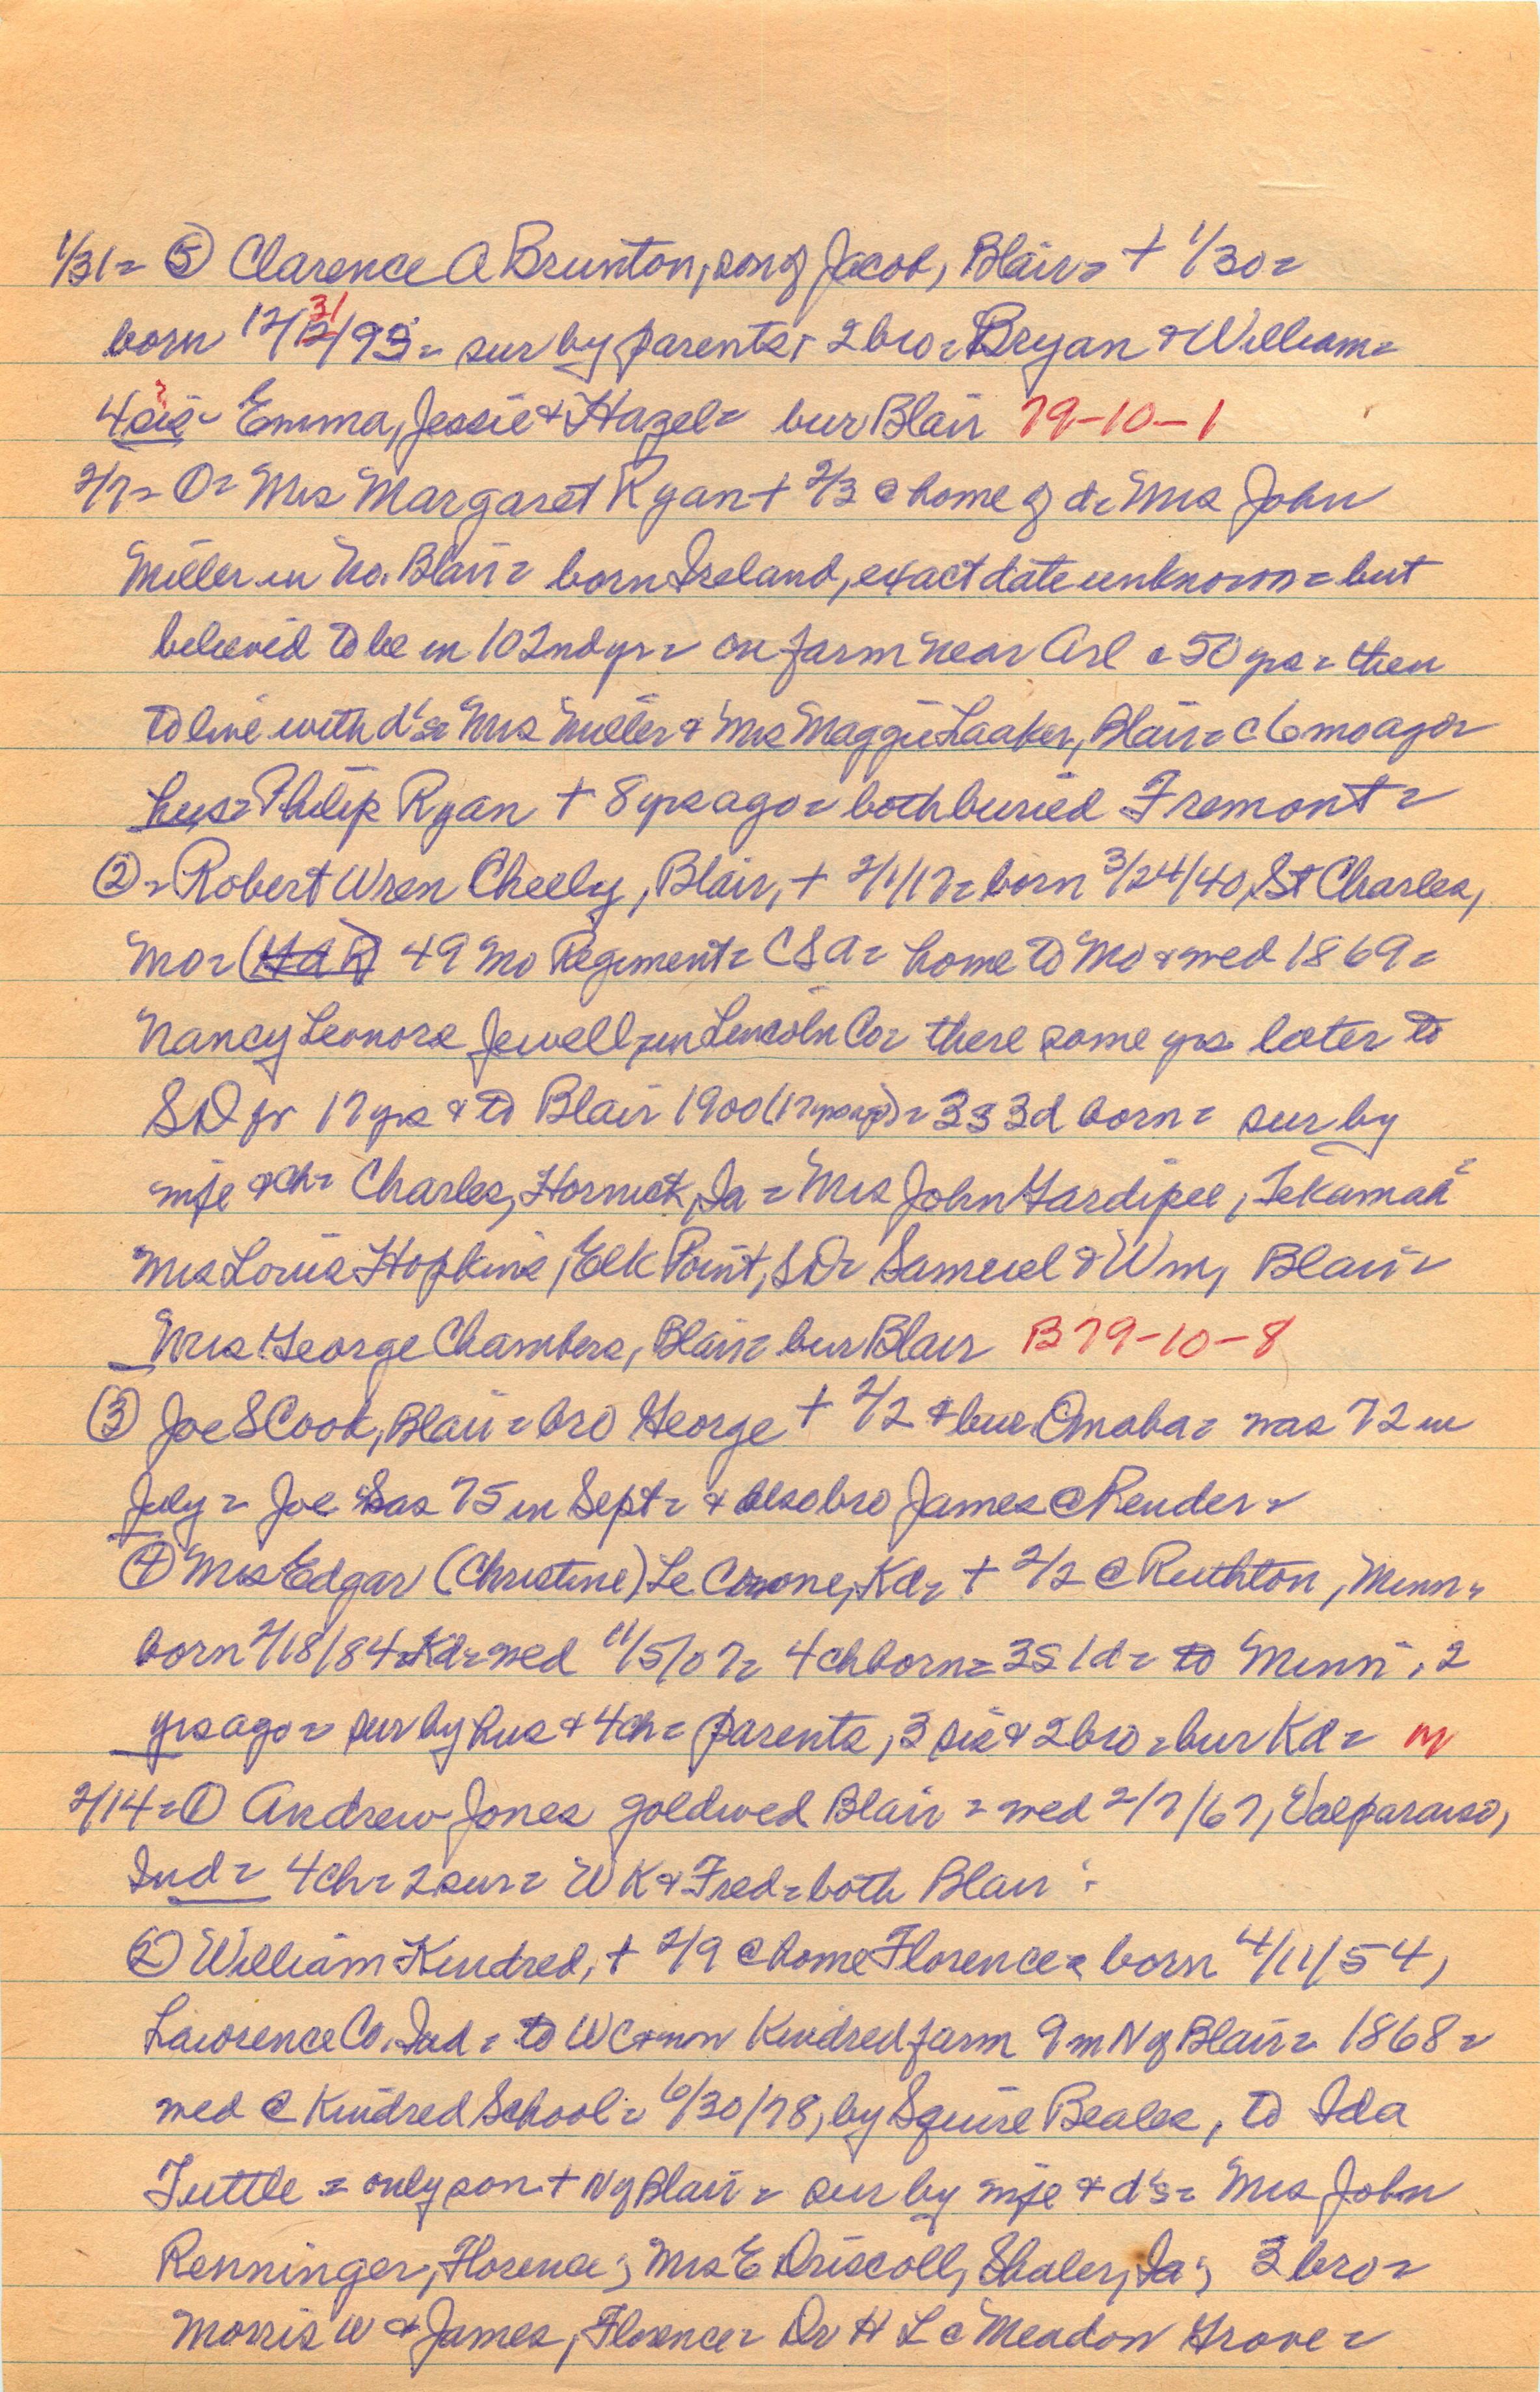 1/31= ⑤ Clarence A Brunton, son of Jacob, Blair= + 1/30=
born 12/12/95= sur by parents, 2 bro= Bryan & William=
31
4 sis= Emma, Jessie & Hazel= bur Blair 79-10-1
?
2/7= ①= Mrs Margaret Ryan + 2/3 @ home of d= Mrs John
Miller in No. Blair= born Ireland, exact date unknown= but
believed to be in 102nd yr= on farm near Arl c 50 yrs= then
to live with d's= Mrs Miller & Mrs Maggie Laaker, Blair= c 6 mo ago=
hus= Philip Ryan + 8 yrs ago= both buried Fremont=
②= Robert Wren Cheely, Blair, + 2/1/17= born 3/24/40, St Charles,
Mo= 49 Mo Regiment= CSA= home to Mo & wed 1869=
Nancy Leonora Jewell, in Lincoln Co= there some yrs later to
SD for 17 yrs & to Blair 1900 (17 yrs ago)= 3s 3d born= sur by
wife & ch= Charles, Hornick, Ia= Mrs John Gardipee, Tekamah=
Mrs Louis Hopkins, Elk Point, SD= Samuel & Wm, Blair=
Mrs George Chambers, Blair= bur Blair B 79-10-8
③ Joe S Cook, Blair= bro George + 2/2 & bur Omaha= was 72 in
July= Joe was 75 in Sept= & also bro James @ Render=
④ Mrs Edgar (Christine) Le Crone, Kd= + 2/2 @ Ruthton, Minn=
born 2/18/84 Kd= wed 11/5/07= 4 ch born= 3s 1d= to Minn, 2
yrs ago= sur by hus & 4 ch= parents, 3 sis & 2 bro= bur Kd= m
2/14= ① Andrew Jones gold wed Blair= wed 2/7/67, Valparaiso,
Ind= 4 ch= 2 sur= W K & Fred= both Blair
② William Kindred, + 2/9 @ home Florence= born 4/11/54,
Lawrence Co, Ind= to WC & now Kindred farm 9 m N of Blair= 1868=
wed @ Kindred School= 6/30/78, by Squire Beales, to Ida
Tuttle= only son + N of Blair= sur by wife & d's= Mrs John
Renninger, Florence; Mrs E Driscoll, Shaler, Ia; 3 bro=
Morris W & James, Florence= Dr H L @ Meadow Grove=